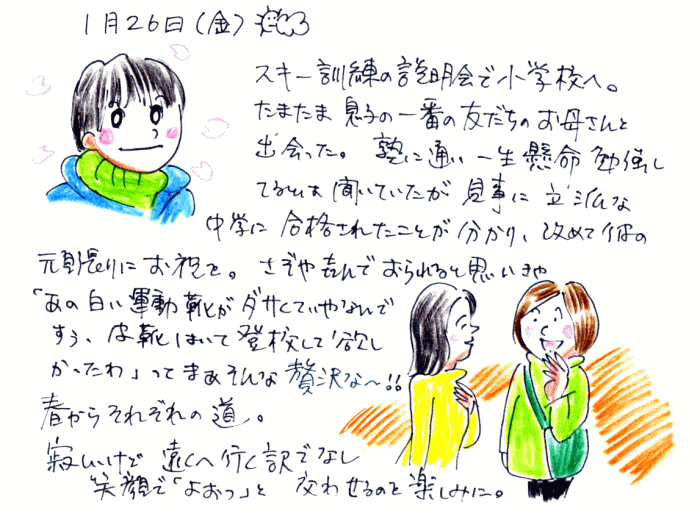 1月26日(金)
スキー訓練の説明会で小学校へ。
たまたま 息子の一番の友だちの お母さんと
出会った。 塾に通い 一生懸命 勉強し
てるとは 聞いていたが 見事に 立派な
中学に 合格されたことが 分かり、改めて彼の
元気な頑張りに お祝を。 さぞや喜んで おられると思いきや
「あの白い運動靴がダサくていやなんで
すぅ、皮靴はいて登校して欲し
かったわ」って まぁそんな 贅沢な〜!!
春からそれぞれの道。
寂しいけど 遠くへ行く訳でなし
笑顔で「よおっ」と 交わせるのを楽しみに。